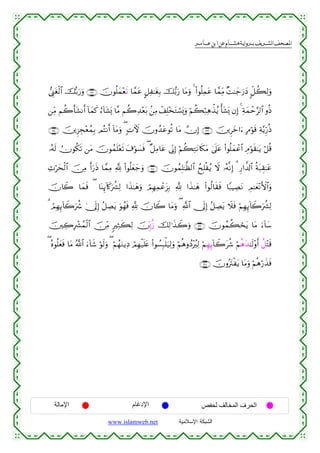 المصحف الشريف برواية هشام عن ابن عامر
وَلِكُلٍّ دَرَجَٰتٌ مِّمَّا عَمِلُوا۟ ۚ وَمَا رَبُّكَ بِغَٰفِلٍ عَمَّا تَعْمَلُونَ وَرَبُّكَ ٱلْغَنِىُّ
ذُو ٱلرَّحْمَةِ ۚ إِن يَشَأْ يُذْهِبْكُمْ وَيَسْتَخْلِفْ مِنۢ بَعْدِكُم مَّا يَشَآءُ كَمَآ أَنشَأَكُم مِّن
ذُرِّيَّةِ قَوْمٍ ءَاخَرِينَ إِنَّ مَا تُوعَدُونَ لَءَاتٍ ۖ وَمَآ أَنتُم بِمُعْجِزِينَ
قُلْ يَٰقَوْمِ ٱعْمَلُوا۟ عَلَىٰ مَكَانَتِكُمْ إِنِّى عَامِلٌ ۖ فَسَوْفَ تَعْلَمُونَ مَن تَكُونُ لَهُۥ
عَٰقِبَةُ ٱلدَّارِ ۗ إِنَّهُۥ لَا يُفْلِحُ ٱلظَّٰلِمُونَ وَجَعَلُوا۟ لِلَّهِ مِمَّا ذَرَأَ مِنَ ٱلْحَرْثِ
وَٱلْأَنْعَٰمِ نَصِيبًا فَقَالُوا۟ هَٰذَا لِلَّهِ بِزَعْمِهِمْ وَهَٰذَا لِشُرَكَآئِنَا ۖ فَمَا كَانَ
لِشُرَكَآئِهِمْ فَلَا يَصِلُ إِلَى ٱللَّهِ ۖ وَمَا كَانَ لِلَّهِ فَهُوَ يَصِلُ إِلَىٰ شُرَكَآئِهِمْ ۗ
سَآءَ مَا يَحْكُمُونَ وَكَذَٰلِكَ زُيِّنَ لِكَثِيرٍ مِّنَ ٱلْمُشْرِكِينَ
قَتْلُ أَوْلَٰدَهُمْ شُرَكَآئِهِمْ لِيُرْدُوهُمْ وَلِيَلْبِسُوا۟ عَلَيْهِمْ دِينَهُمْ ۖ وَلَوْ شَآءَ ٱللَّهُ مَا فَعَلُوهُ ۖ
فَذَرْهُمْ وَمَا يَفْتَرُونَ
الحرف المخالف لحفص الإدغام الإمالة
الشبكة الإسلامية www.islamweb.net